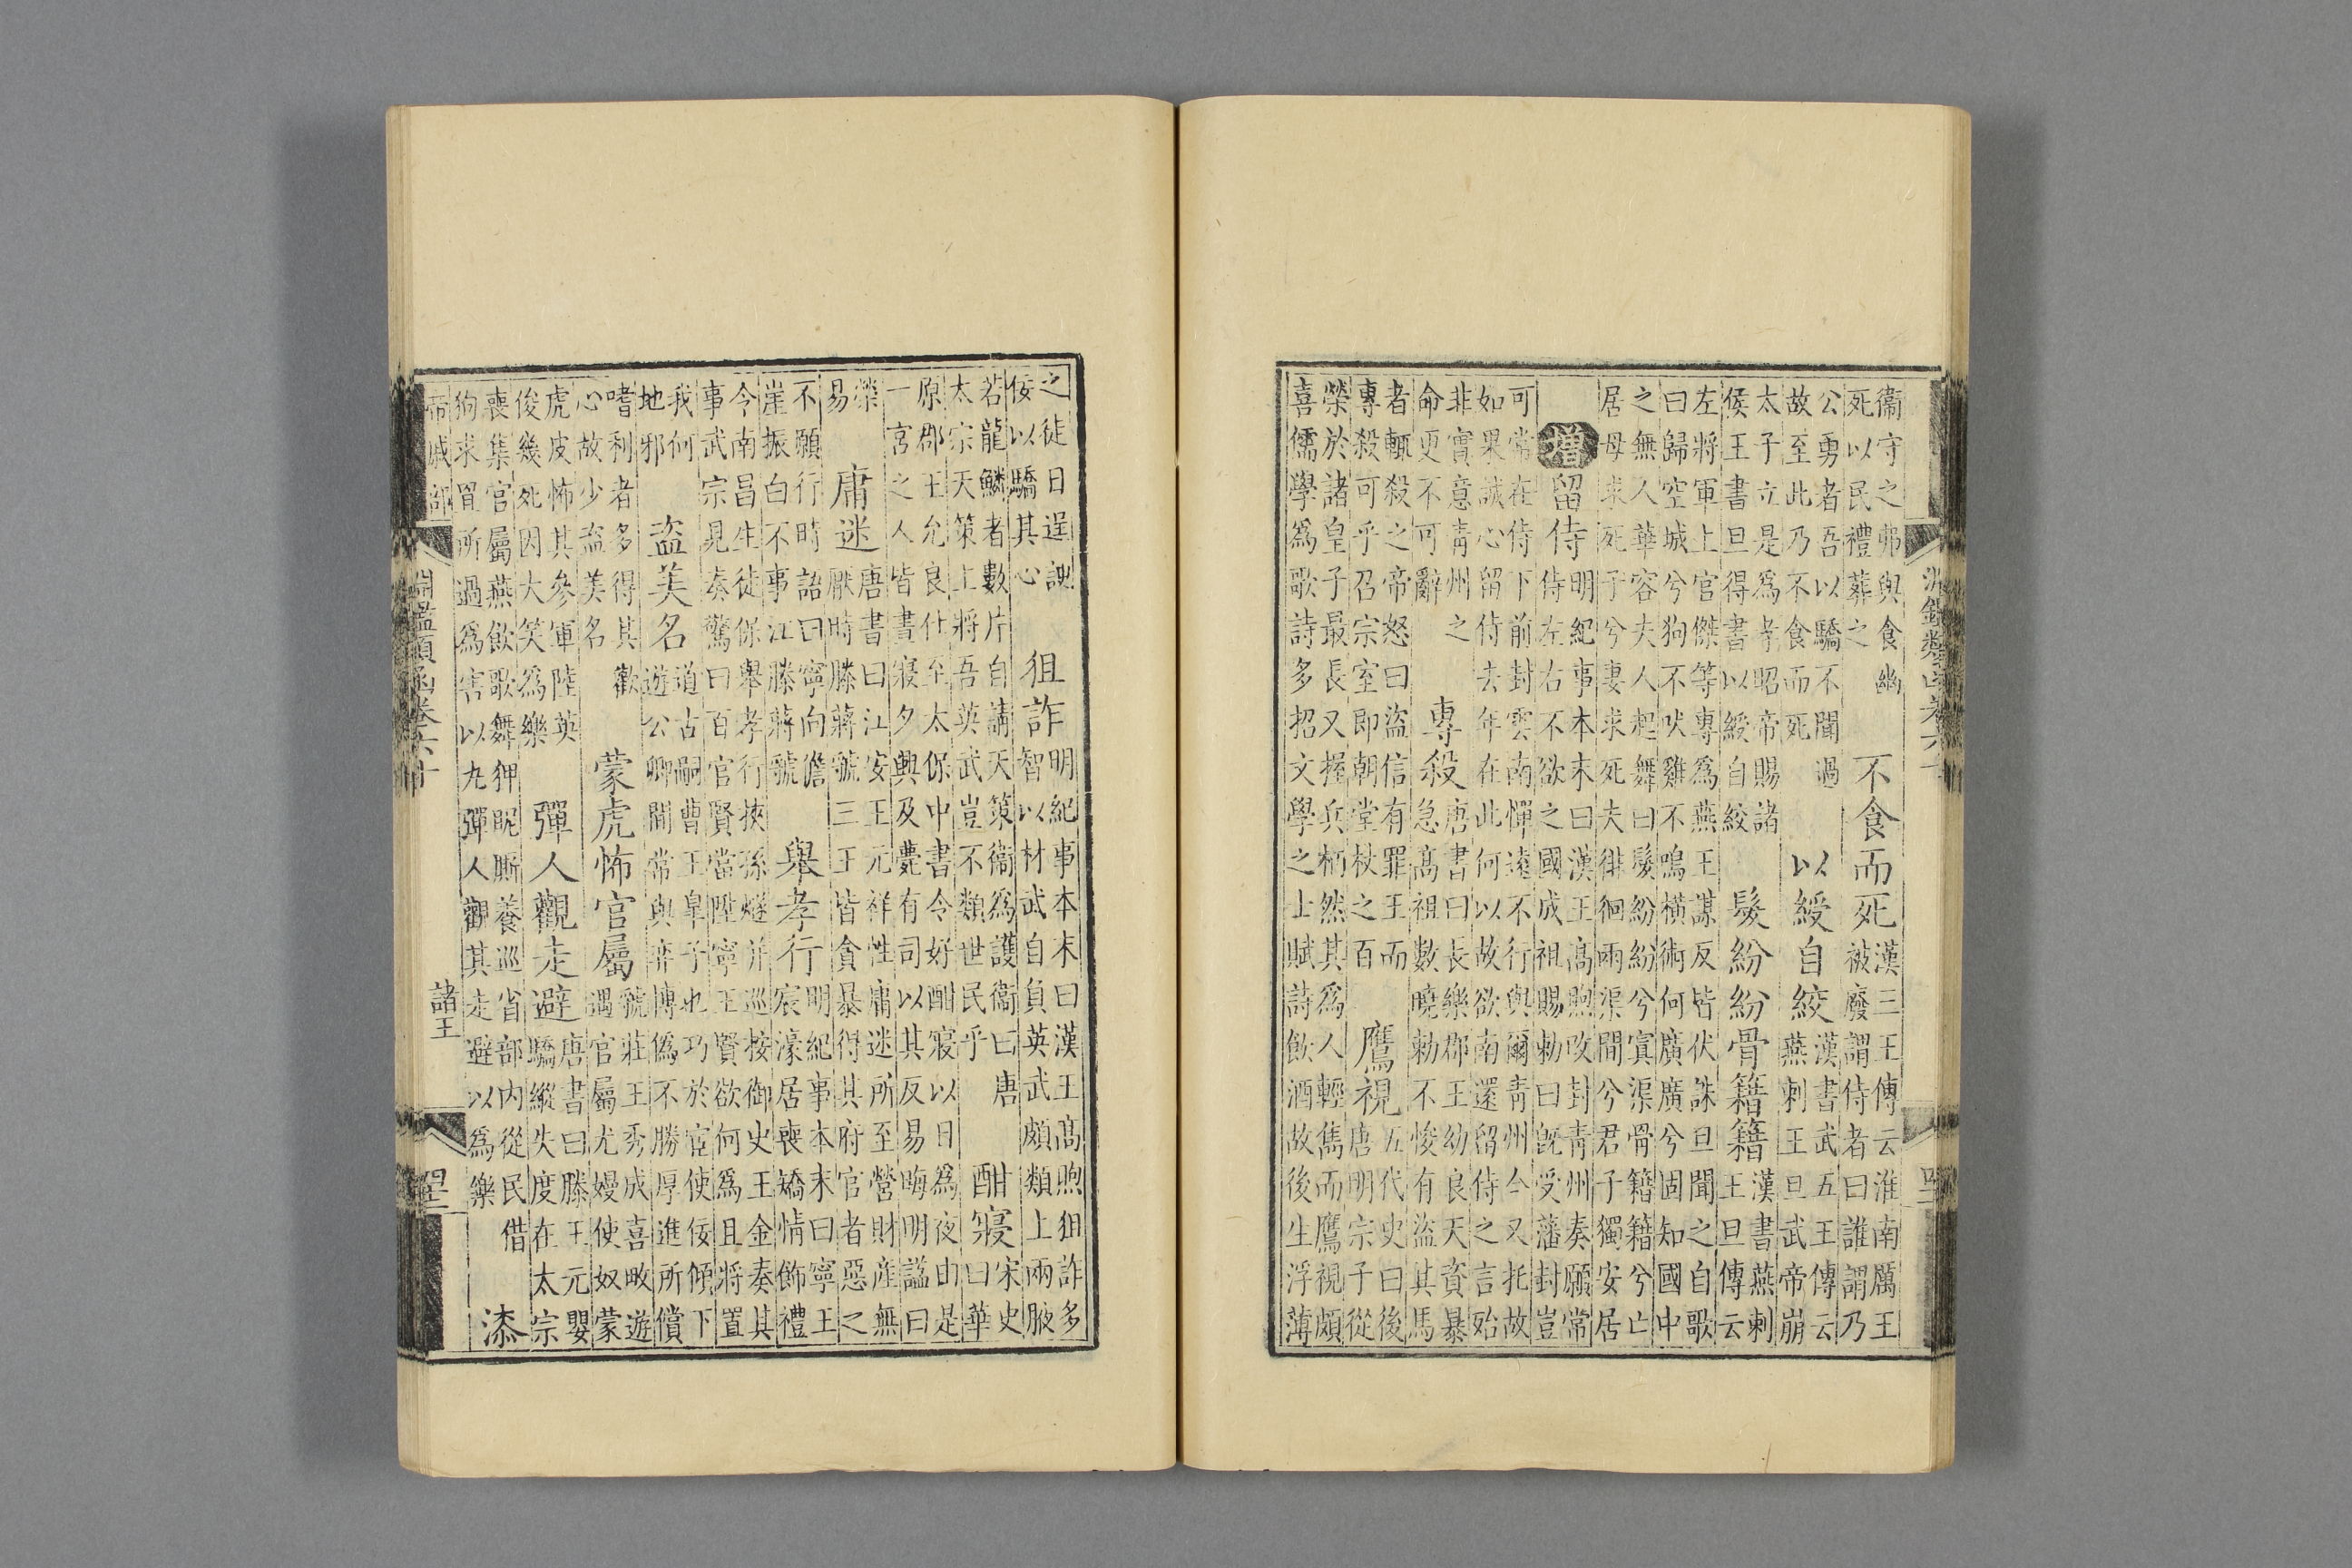 衞守之弗與食幽
死以民禮葬之
不食而死
漢三王傳云淮南厲王
被廢謂侍者曰誰謂乃
公勇者吾以驕不聞過
故至此乃不食而死
以綬自絞
漢書武五王傳云
燕刺王旦武帝崩
太子立是爲孝昭帝賜諸
侯王書旦得書以綬自絞
髮紛紛骨籍籍
漢書燕刺
王旦傳云
左將軍上官傑等專爲燕王謀反皆伏誅旦聞之自歌
曰歸空城兮狗不吠雞不鳴橫術何廣廣兮固知國中
之無人華容夫人起舞曰髮紛紛兮寘渠骨籍籍兮亡
居母求死子兮妻求死夫徘徊兩渠間兮君子獨安居
增
留侍
明紀事本末曰漢王高煦改封青州奏願常
侍左右不欲之國成祖賜勅曰旣受藩封豈
可常在侍下前封雲南憚遠不行與爾青州今又托故
如果誠心留侍去年在此何以故欲南還留侍之言殆
非實意青州之
命更不可辭
專殺
唐書曰長樂郡王幼良天資暴
急高祖數曉勅不悛有盜其馬
者輒殺之帝怒曰盜信有罪王而
專殺可乎召宗室即朝堂杖之百
鷹視
五代史曰後
唐明宗子從
榮於諸皇子最長又握兵柄然其爲人輕雋而鷹視頗
喜儒學爲歌詩多招文學之士賦詩飲酒故後生浮薄
之徒日逞諛
佞以驕其心
狙詐
明紀事本末曰漢王高煦狙詐多
智以材武自負英武頗類上兩腋
若龍鱗者數片自請天策衞爲護衞曰唐
太宗天策上將吾英武豈不類世民乎
酣寢
宋史
曰華
原郡王允良仕至太保中書令好酣寢以日爲夜由是
一宮之人皆書寢夕興及薨有司以其反易晦明謚曰
榮
易
庸迷
唐書曰江安王元祥性庸迷所至營財產無
厭時滕蔣虢三王皆貪暴得其府官者惡之
不願行時語曰寧向儋
崖振白不事江滕蔣虢
舉孝行
明紀事本末曰寧王
宸濠居喪矯情飾禮
今南昌生徒保舉孝行挾孫燧并巡按御史王金奏其
事武宗見奏驚曰百官賢當陞寧王賢欲何爲且將置
我何
地邪
盜美名
道古嗣曹王臯子也巧於宦使佞傾下
遊公卿間常與弈博偽不勝厚進所償
嗜利者多得其歡
心故少盜美名
蒙虎怖官屬
虢莊王秀成喜畋遊
遇官屬尤嫚使奴蒙
虎皮怖其參軍陸英
俊幾死因大笑爲樂
彈人觀走避
唐書曰滕王元嬰
驕縱失度在太宗
喪集官屬燕飲歌舞狎昵厮養巡省部內從民借
狗求罝所過爲害以丸彈人觀其走避以爲樂
漆
帝戚部
淵鑑類函卷六十
諸王